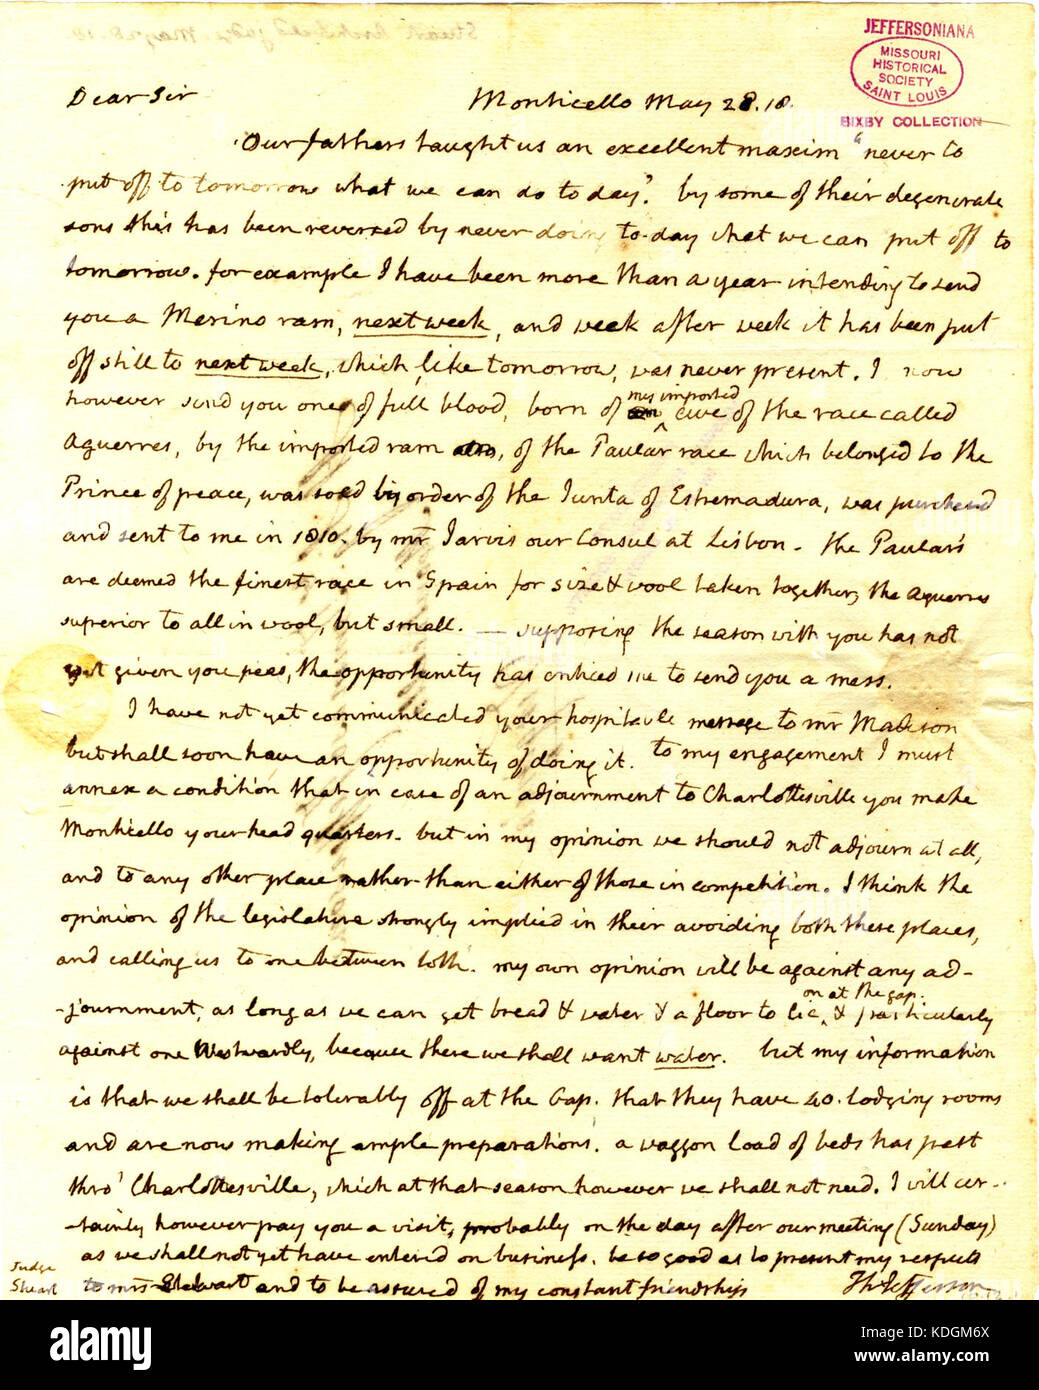 JEFFERSONIANA
MISSOURI
HISTORICAL
SOCIETY
SAINT LOUIS
BIXBY COLLECTION
Dear Sir
Monticello May 28. 18.
Our fathers taught us an excellent maxim "never to
put off to tomorrow what we can do to day". by some of their degenerate
sons this has been reversed by never doing to-day what we can put off to
tomorrow. for example I have been more than a year intending to send
you a Merino ram, next week, and week after week it has been put
off still to next week, which, like tomorrow, was never present. I now
however send you one of full blood, born of my imported ewe of the race called
Aguerres, by the imported ram, of the Paular race which belonged to the
Prince of peace, was sold by order of the Junta of Estremadura, was purchased
and sent to me in 1810. by mr Jarvis our Consul at Lisbon. the Paulars
are deemed the finest race in Spain for size & wool taken together, the Aguerres
superior to all in wool, but small. — supposing the season with you has not
yet given you peas, the opportunity has enticed me to send you a mess.
I have not yet communicated your hospitable message to mr Madison
but shall soon have an opportunity of doing it. to my engagement I must
annex a condition that in case of an adjournment to Charlottesville you make
Monticello your head quarters. but in my opinion we should not adjourn at all,
and to any other place rather than either of those in competition. I think the
opinion of the legislature strongly implied in their avoiding both these places,
and calling us to one between both. my own opinion will be against any ad-
-journment, as long as we can get bread & water & a floor to lie on at the gap. & particularly
against one Westwardly, because there we shall want water. but my information
is that we shall be tolerably off at the Gap. that they have 40. lodging rooms
and are now making ample preparations. a waggon load of beds has past
thro' Charlottesville, which at that season however we shall not need. I will cer-
-tainly however pay you a visit, probably on the day after our meeting (Sunday)
as we shall not yet have entered on business. be so good as to present my respects
to mrs Stewart and to be assured of my constant friendship
Th Jefferson
Judge
Stuart
alamy
Image ID: KDGM6X
www.alamy.com